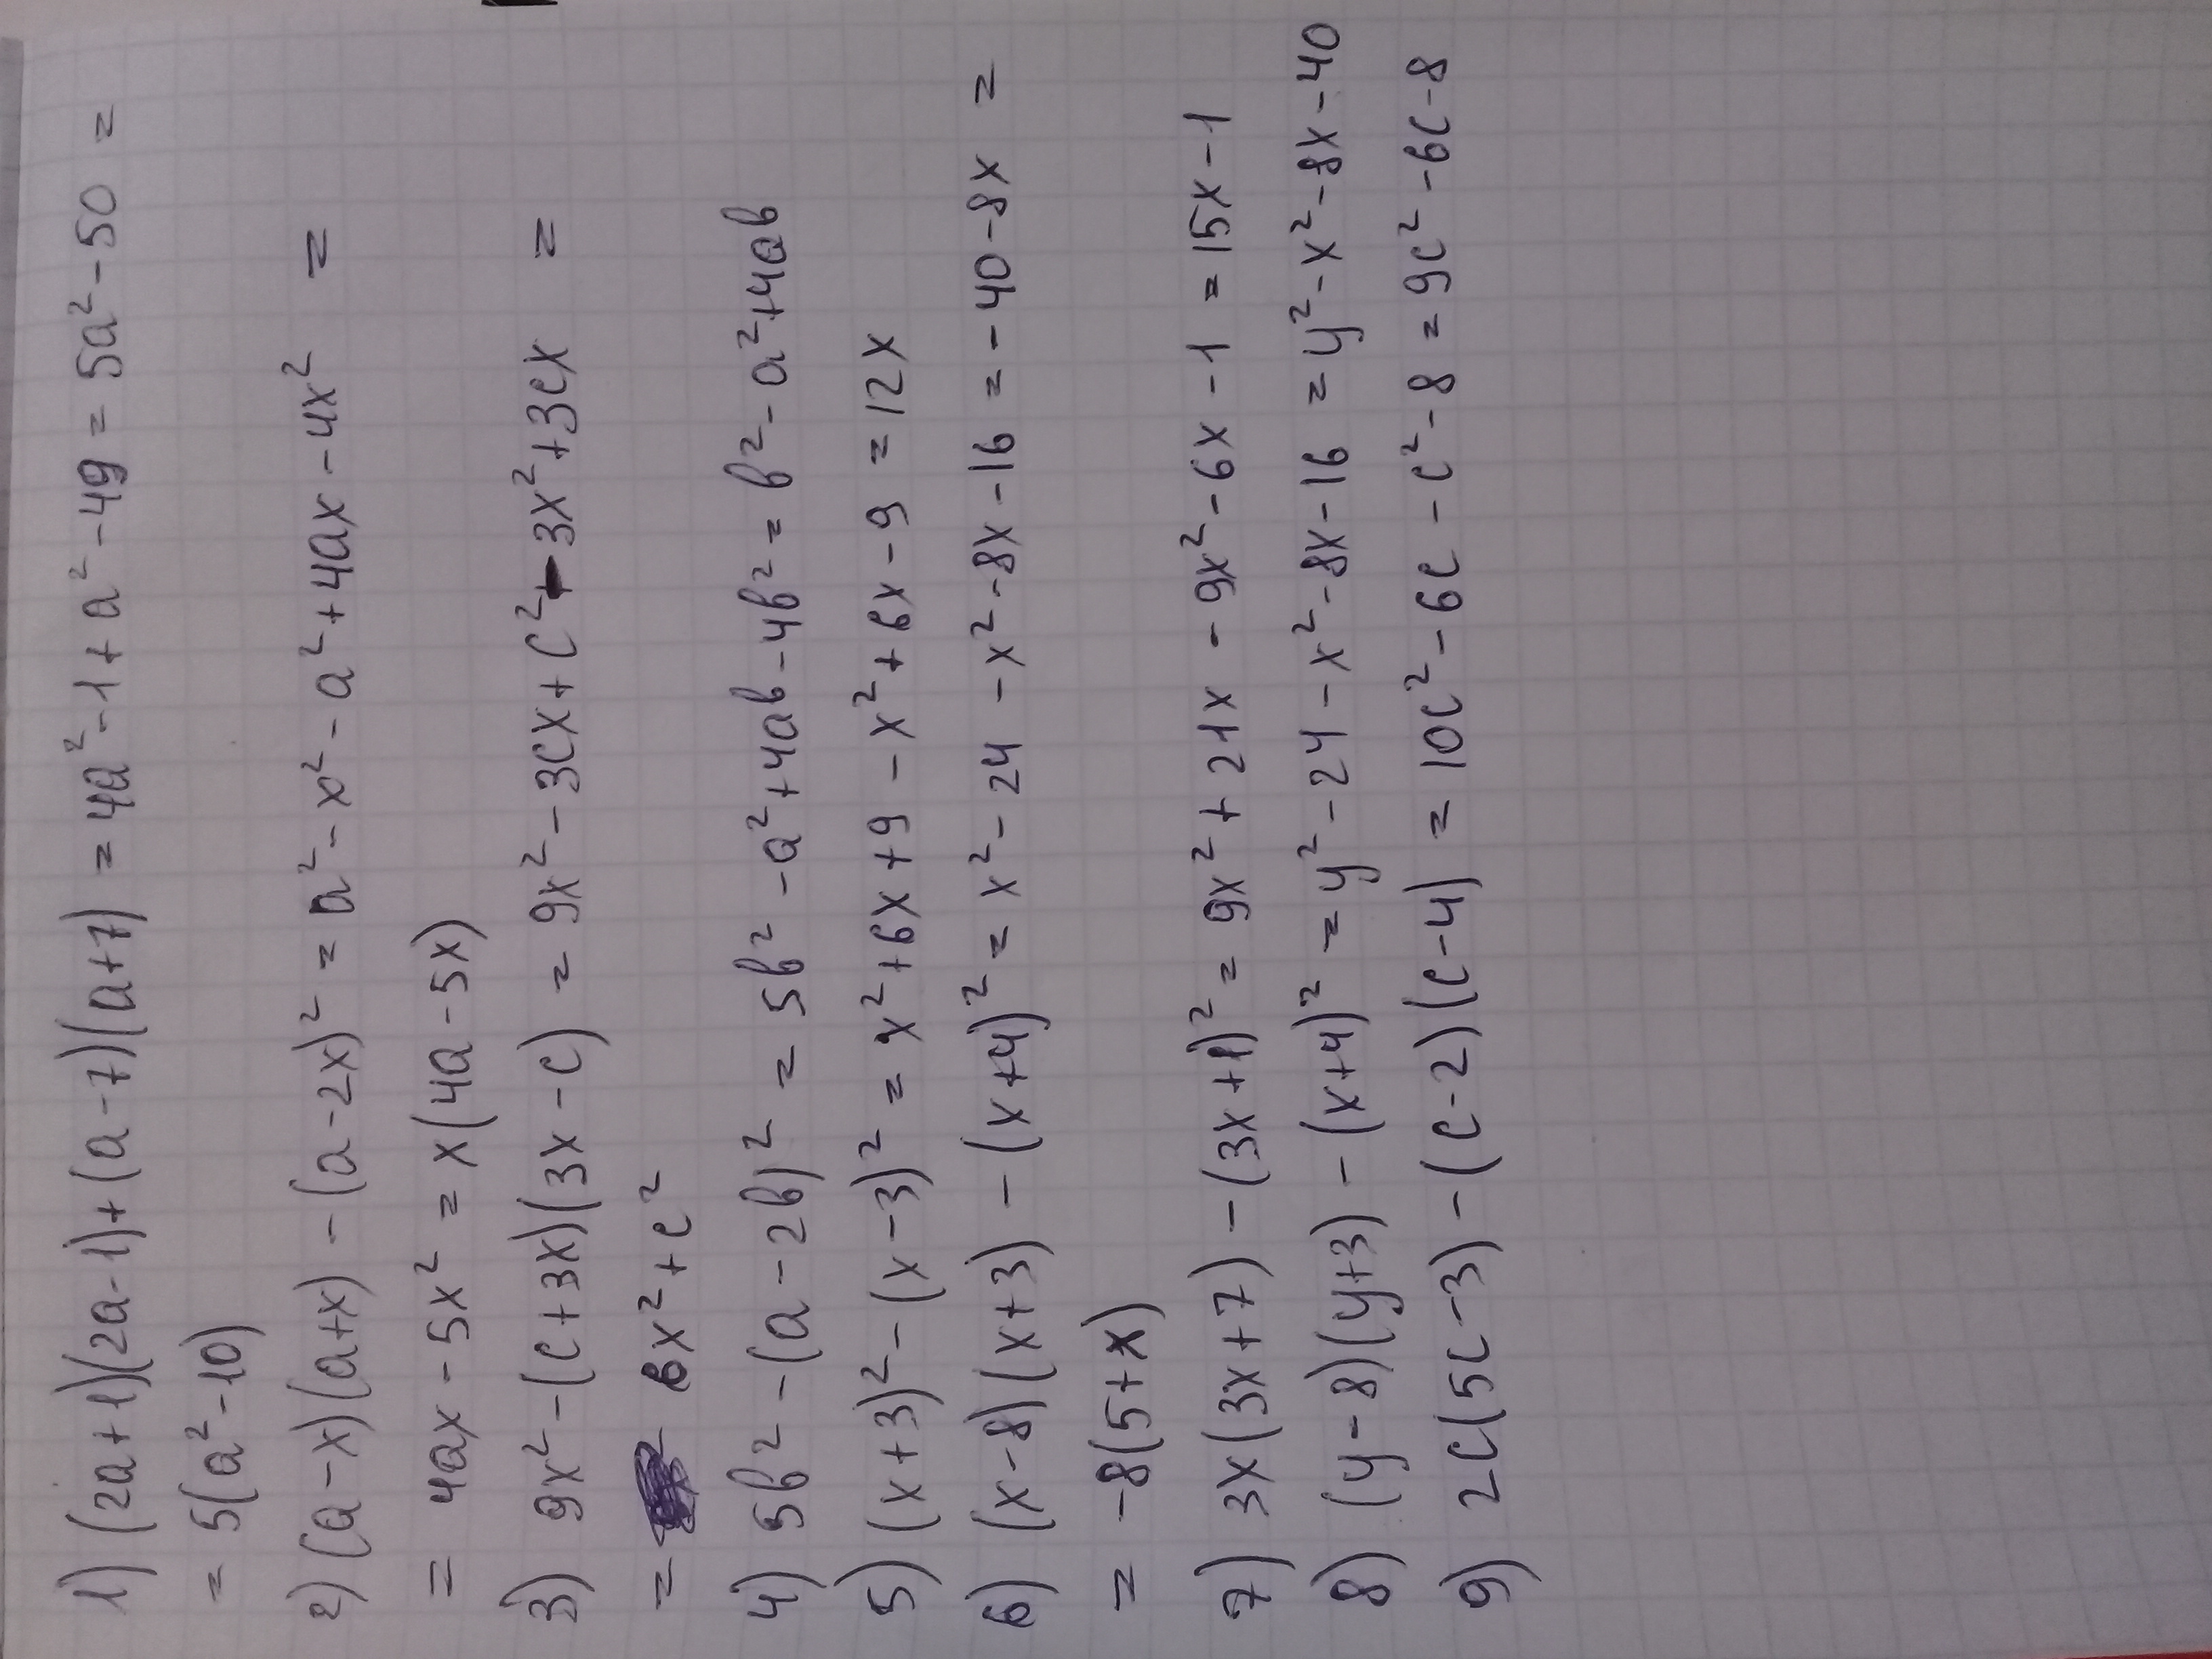 1) (2a+1)(2a-1)+(a-7)(a+7) = 4a²-1+a²-49 = 5a²-50 =
= 5(a²-10)
2) (a-x)(a+x) - (a-2x)² = a²-x²-a²+4ax-4x² =
= 4ax-5x² = x(4a-5x)
3) 9x²-(c+3x)(3x-c) = 9x²-3cx+c²-3x²+3cx =
= 6x²+c²
4) 5b²-(a-2b)² = 5b²-a²+4ab-4b² = b²-a²+4ab
5) (x+3)²-(x-3)² = x²+6x+9-x²+6x-9 = 12x
6) (x-8)(x+3) - (x+4)² = x²-24-x²-8x-16 = -40-8x =
= -8(5+x)
7) 3x(3x+7) - (3x+1)² = 9x²+21x-9x²-6x-1 = 15x-1
8) (y-8)(y+3) - (x+4)² = y²-24-x²-8x-16 = y²-x²-8x-40
9) 2c(5c-3)-(c-2)(c-4) = 10c²-6c-c²-8 = 9c²-6c-8